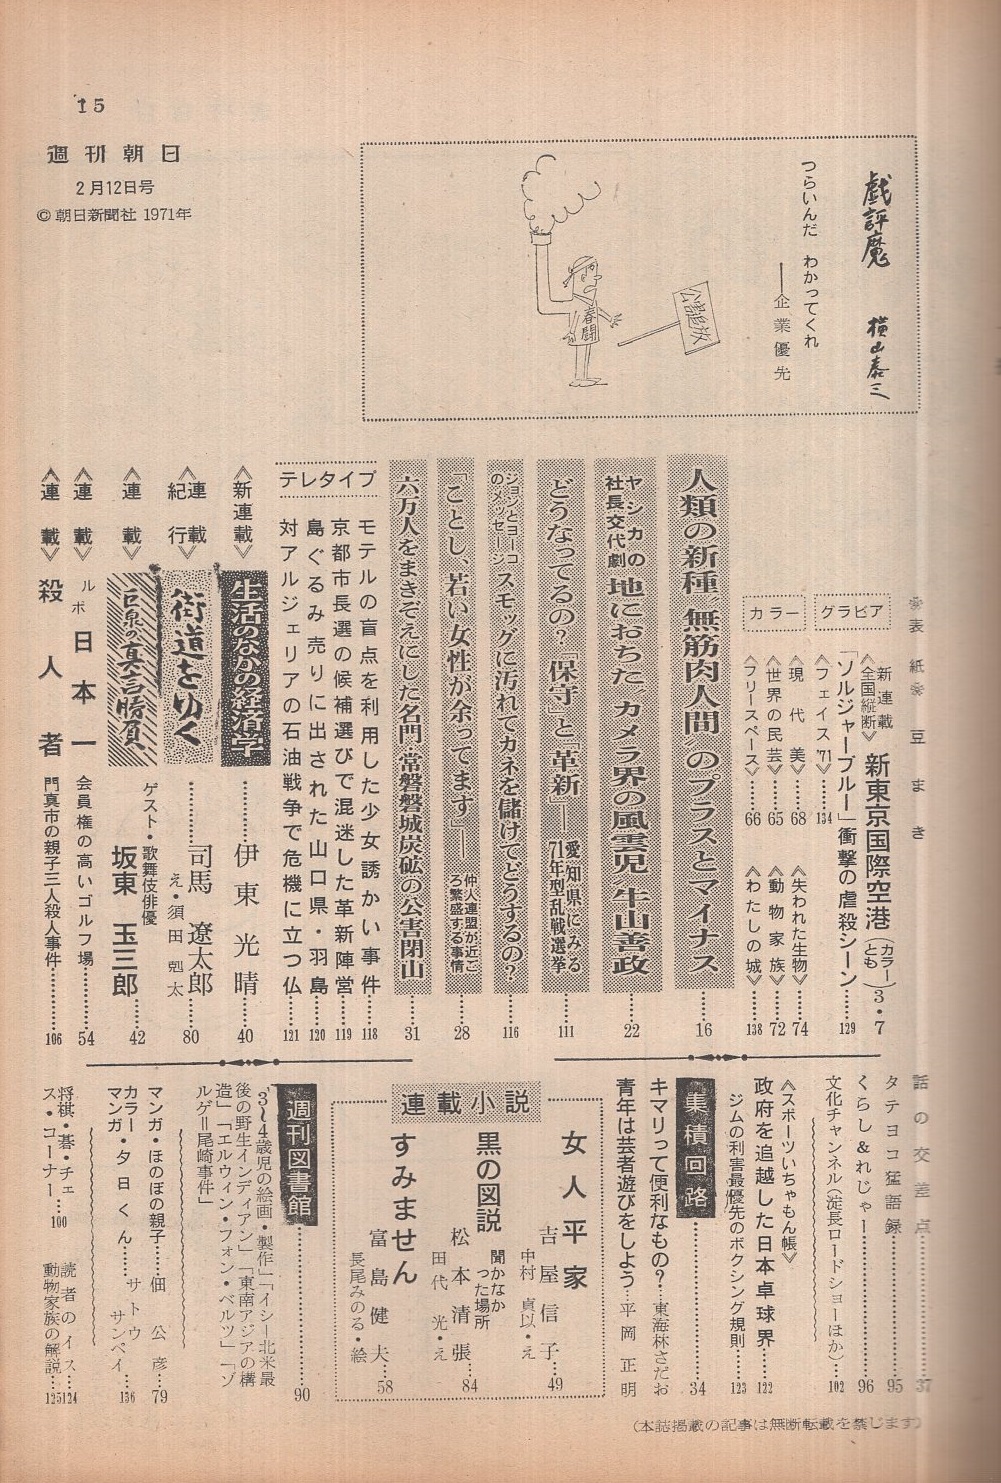 15
週刊朝日
2月12日号
©朝日新聞社 1971年
戯評魔 横山泰三
つらいんだ わかってくれ
――企業優先
公害追放
春闘
❀表紙❀ 豆まき
グラビア
カラー
新連載
《全国縦断》
新東京国際空港(カラーとも)3・7
「ソルジャーブルー」衝撃の虐殺シーン……129
《フェイス'71》……134
《現代美》……68
《世界の民芸》……65
《フリースペース》……66
《失われた生物》……74
《動物家族》……72
《わたしの城》……138
人類の新種“無筋肉人間”のプラスとマイナス……16
ヤシカの社長交代劇 地におちた“カメラ界の風雲児”牛山善政……22
どうなってるの?「保守」と「革新」――愛知県にみる71年型乱戦選挙……111
ジョンとヨーコのメッセージ スモッグに汚れてカネを儲けてどうするの?……116
「ことし、若い女性が余ってます」――仲人連盟が近ごろ繁盛する事情……28
六万人をまきぞえにした名門・常磐磐城炭砿の公害閉山……31
テレタイプ
モテルの盲点を利用した少女誘かい事件……118
京都市長選の候補選びで混迷した革新陣営……119
島ぐるみ売りに出された山口県・羽島……120
対アルジェリアの石油戦争で危機に立つ仏……121
《新連載》生活のなかの経済学……伊東光晴……40
《連載紀行》街道をゆく……司馬遼太郎 え・須田剋太……80
《連載》巨泉の真言勝負 ゲスト・歌舞伎俳優 坂東玉三郎……42
《連載》ルポ日本一 会員権の高いゴルフ場……54
《連載》殺人者 門真市の親子三人殺人事件……106
話の交差点……37
タテヨコ猛語録……95
くらし&れじゃー……96
文化チャンネル(淀長ロードショーほか)……102
《スポーツいちゃもん帳》
政府を追越した日本卓球界……122
ジムの利害最優先のボクシング規則……123
集積回路……34
キマリって便利なもの?…東海林さだお
青年は芸者遊びをしよう…平岡正明
連載小説
女人平家 吉屋信子……49
中村貞以・え
黒の図説 聞かなかった場所 松本清張……84
田代光・え
すみません 富島健夫……58
長尾みのる・絵
週刊図書館……90
「3〜4歳児の絵画・製作」「イシー北米最後の野生インディアン」「東南アジアの構造」「エルウィン・フォン・ベルツ」「ゾルゲ=尾崎事件」
マンガ・ほのぼの親子……佃公彦……79
カラーマンガ・夕日くん……サトウサンペイ……136
将棋・碁・チェス・コーナー……100
読者のイス……124
動物家族の解説……125
(本誌掲載の記事は無断転載を禁じます)